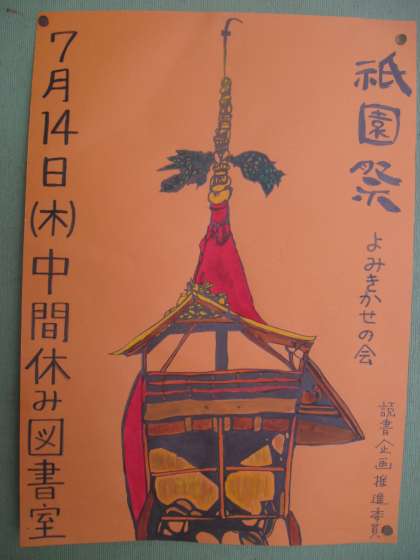 祇園祭
よみきかせの会
読書企画推進委員
7月14日(木)中間休み図書室